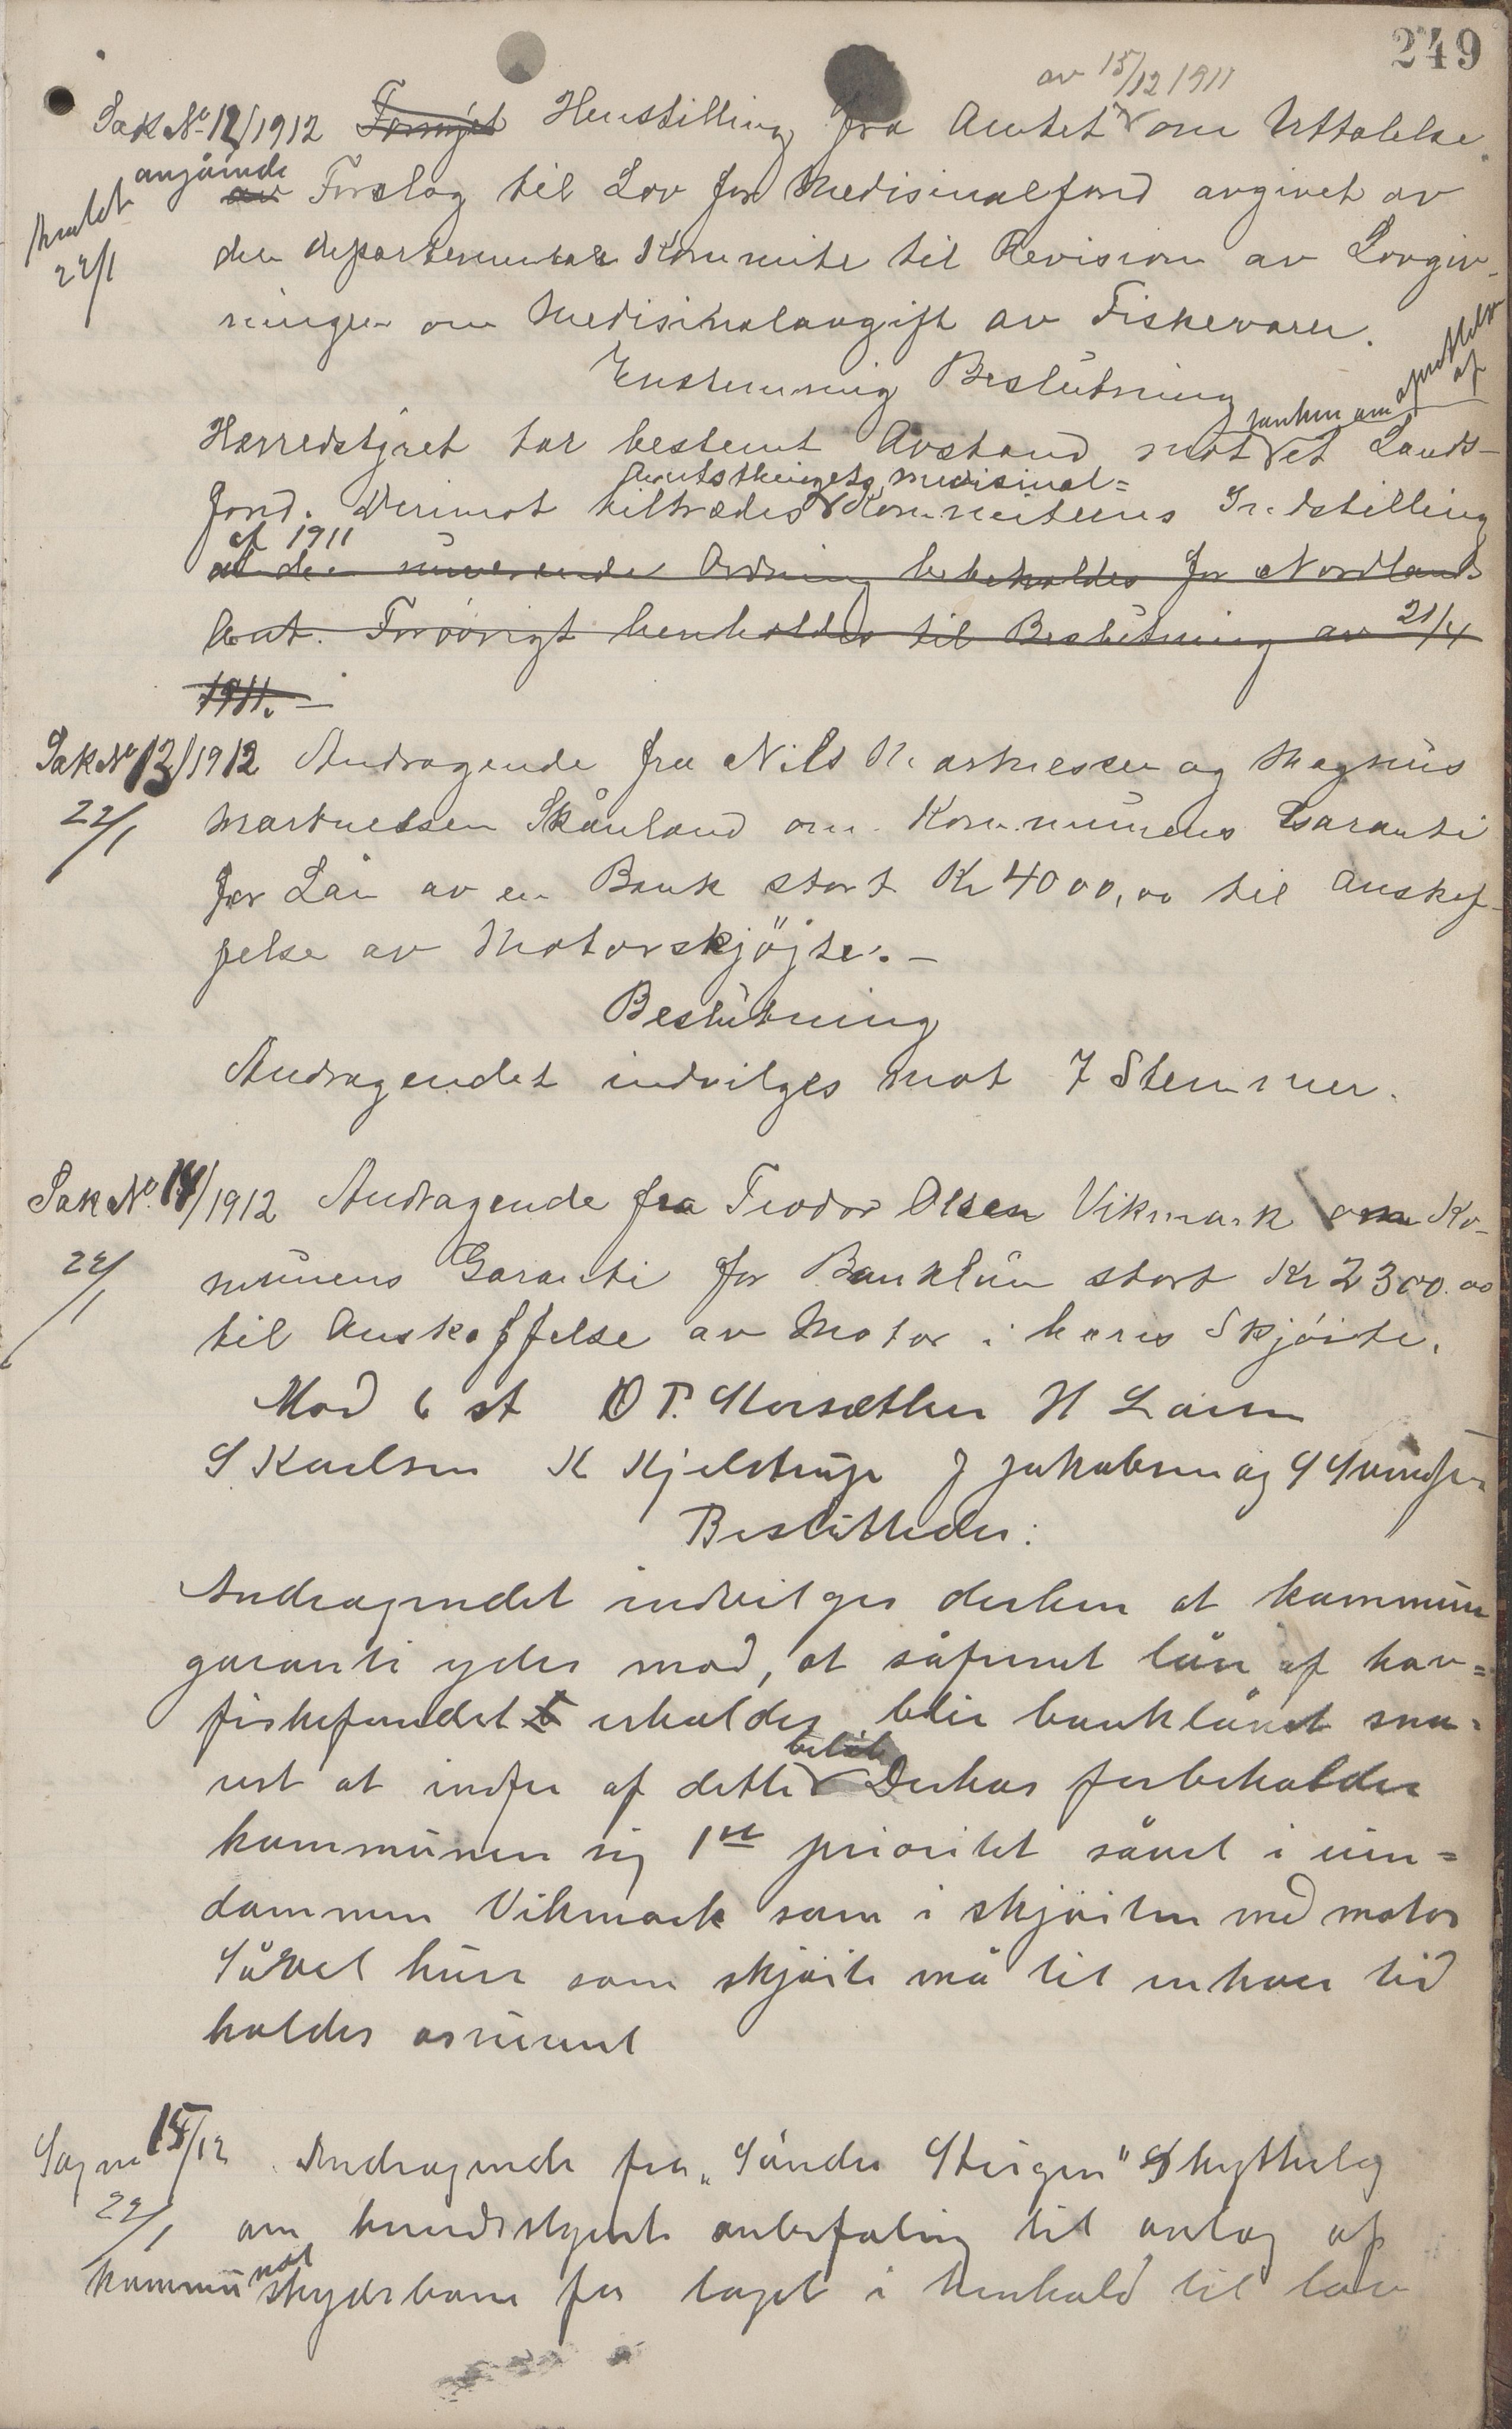 249
av 15/12 1911
Sak No 12/1912 Fornyet Henstilling fra Amtet om Uttalelse
angående
av Forslag til Lov for Medisinalfond avgivet av
22/1
den departementale Kommite til Revision av Lovgiv-
ningen om Medisinalavgift av Fiskevarer.
Enstemmig Beslutning
tanken om oprettelse af
Herredstyret tar bestemt Avstand mot et Lands-
Amtsthingets medisinal=
fond. Derimot tiltrædes Kommiteens Indstilling
af 1911
at den nuverende Ordning bebeholdes for Nordlands
Amt. Forøvrigt henholdes til Beslutning av 21/4
1911. –
Sak No 13/1912 Andragende fra Nils Martnessen og Magnus
22/1
Martnessen Skånland om Kommunens Garanti
for Lån av en Bank stort Kr 4000,00 til Anskaf-
felse av Motorskjöjte. –
Beslutning
Andragendet indvilges mot 7 Stemmer.
Sak No 14/1912 Andragende fra Teodor Olsen Vikmark om Ko-
22/1
munens Garanti for Banklån stort Kr 2300.00
til Anskaffelse av Motor i hans Skjöite.
Mod 6 st O T. Storsæther H Larsen
S Karlsen K Kjelstrup J Jakobsen og
Besluttedes:
Andragendet indvilges derhen at kommune
garanti ydes mod, at såfremt lån af hav=
fiskefondet erholdes blir banklånet sna=
rest at indfri af dette beløb Derhos forbeholder
kommunen sig 1ste prioritet såvel i eien=
dommen Vikmark som i skjöiten med motor
Såvel huse som skjöite må til enhver tid
holdes assureret
Sag nr 15/12 Andragende fra „Söndre Steigen" Skytterlag
22/1
om herredsstyrets anbefaling til anlæg af
kommunal skydebane for laget i henhold til lov